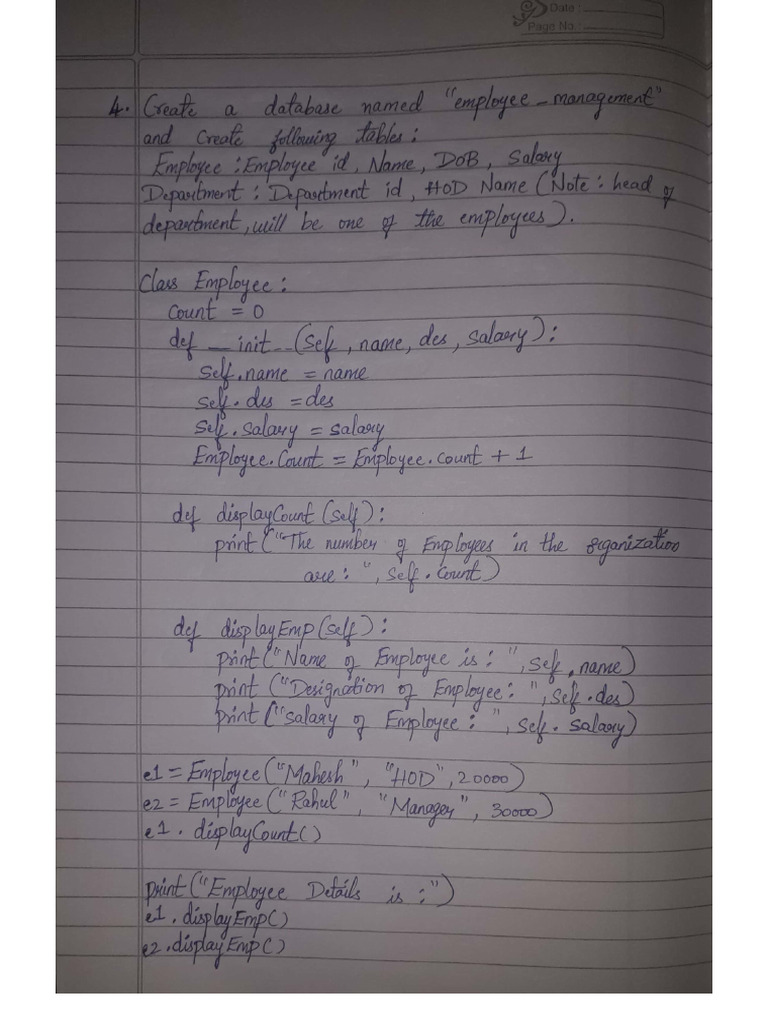 Date :
Page No. :
4. Create a database named "employee_management"
and Create following tables :
Employee : Employee id, Name, DOB, Salary
Department : Department id, HOD Name (Note : head of
department, will be one of the employees).
Class Employee :
Count = 0
def __init__(self, name, des, salary):
self.name = name
self.des = des
self.salary = salary
Employee.Count = Employee.count + 1
def displayCount (self):
print("The number of Employees in the organization
are : ", self.count)
def displayEmp(self):
print("Name of Employee is : ", self.name)
print ("Designation of Employee : ", self.des)
print ("Salary of Employee : ", self.salary)
e1 = Employee("Mahesh", "HOD", 20000)
e2 = Employee("Rahul", "Manager", 30000)
e1.displayCount()
print("Employee Details is :")
e1.displayEmp()
e2.displayEmp()